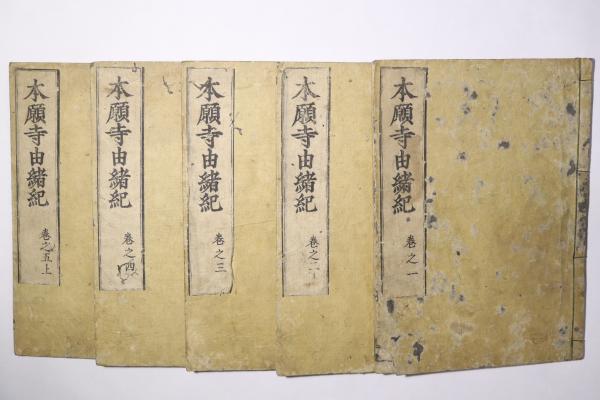 本願寺由緒紀
巻之一
本願寺由緒紀
巻之二
本願寺由緒紀
巻之三
本願寺由緒紀
巻之四
本願寺由緒紀
巻之五上